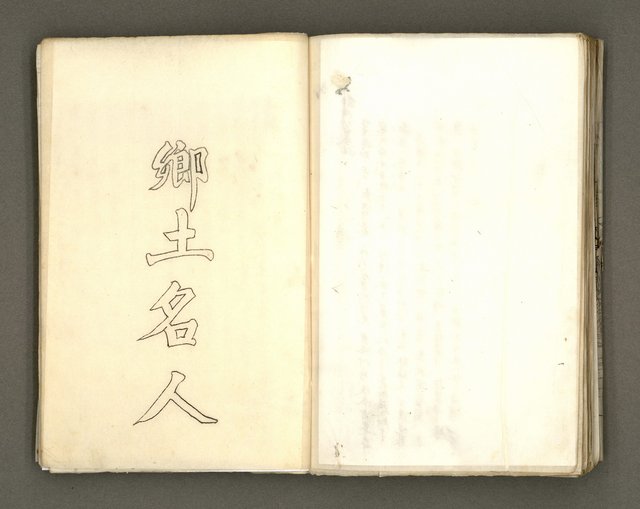 鄉土名人